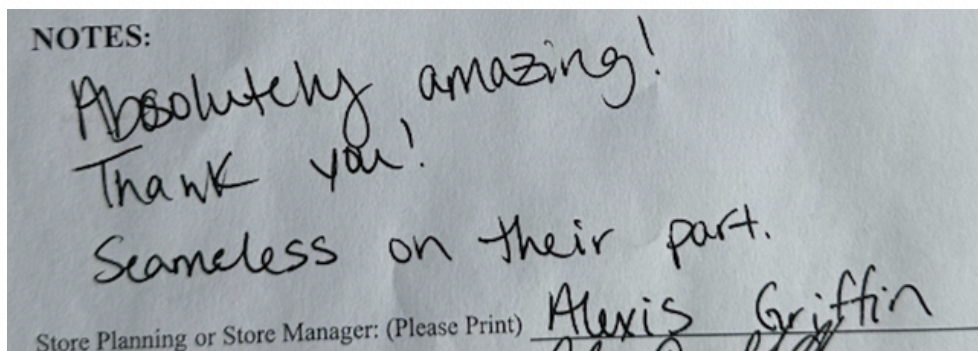 NOTES:
Absolutely amazing!
Thank you!
Seameless on their part.
Store Planning or Store Manager: (Please Print) Alexis Griffin